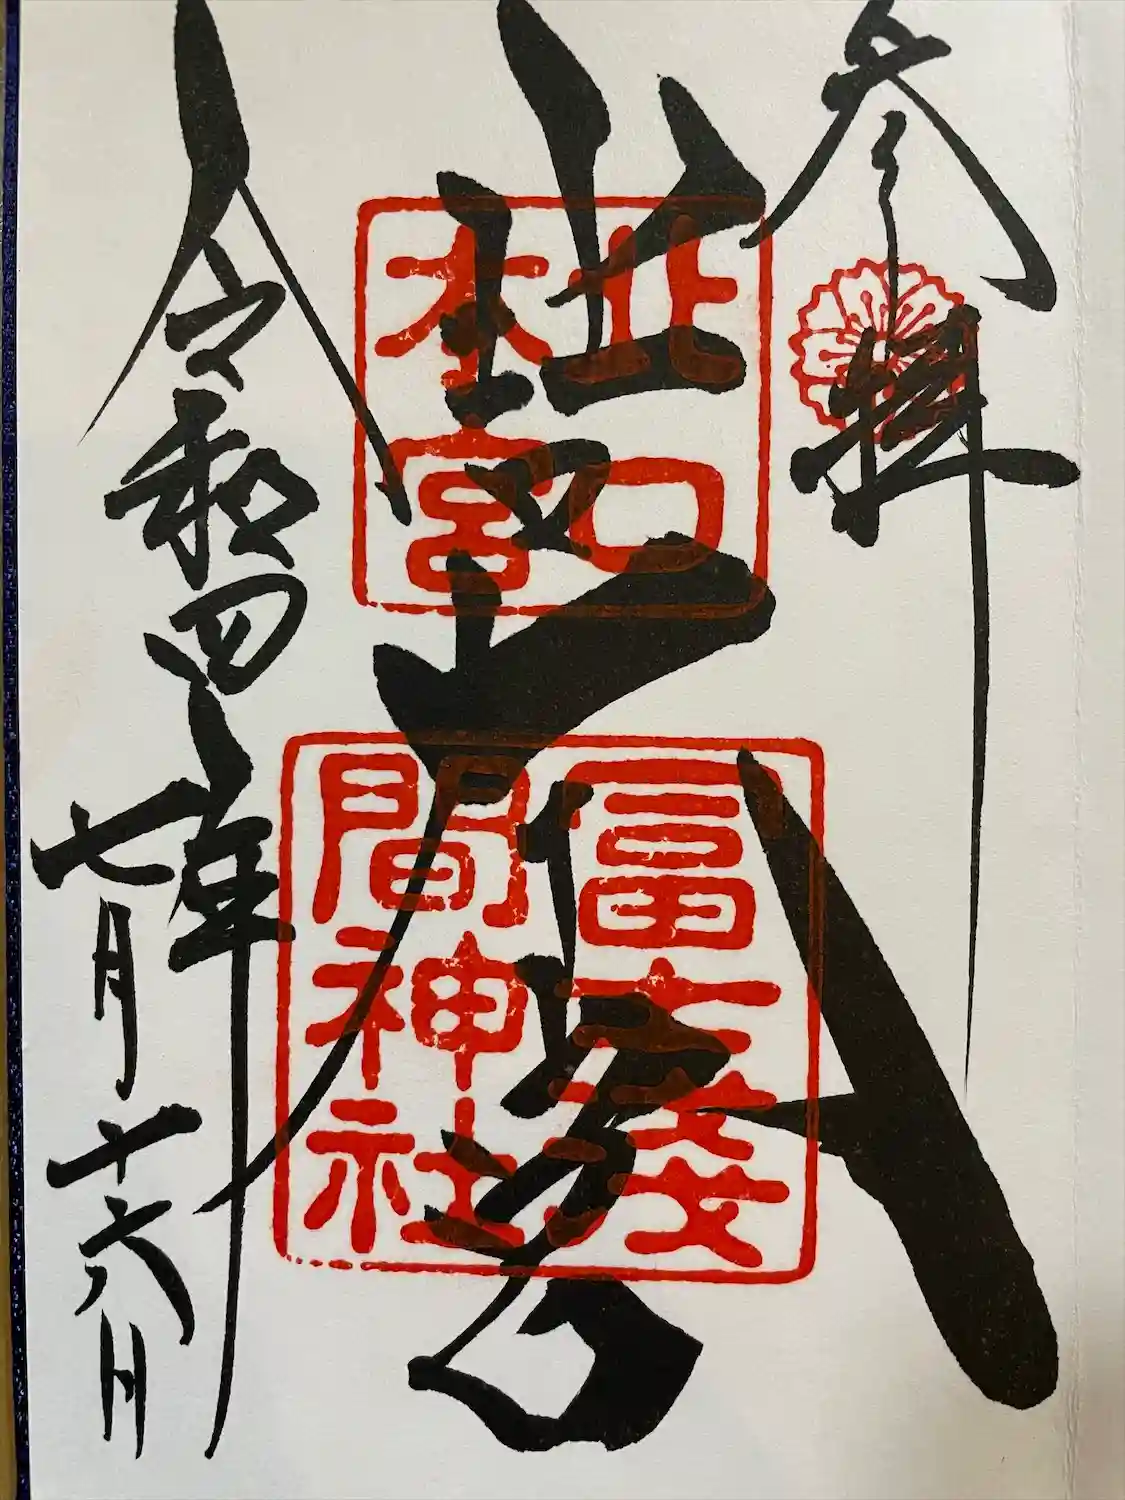 参拝
北口
本宮
冨士浅
間神社
令和四年
七月十六日